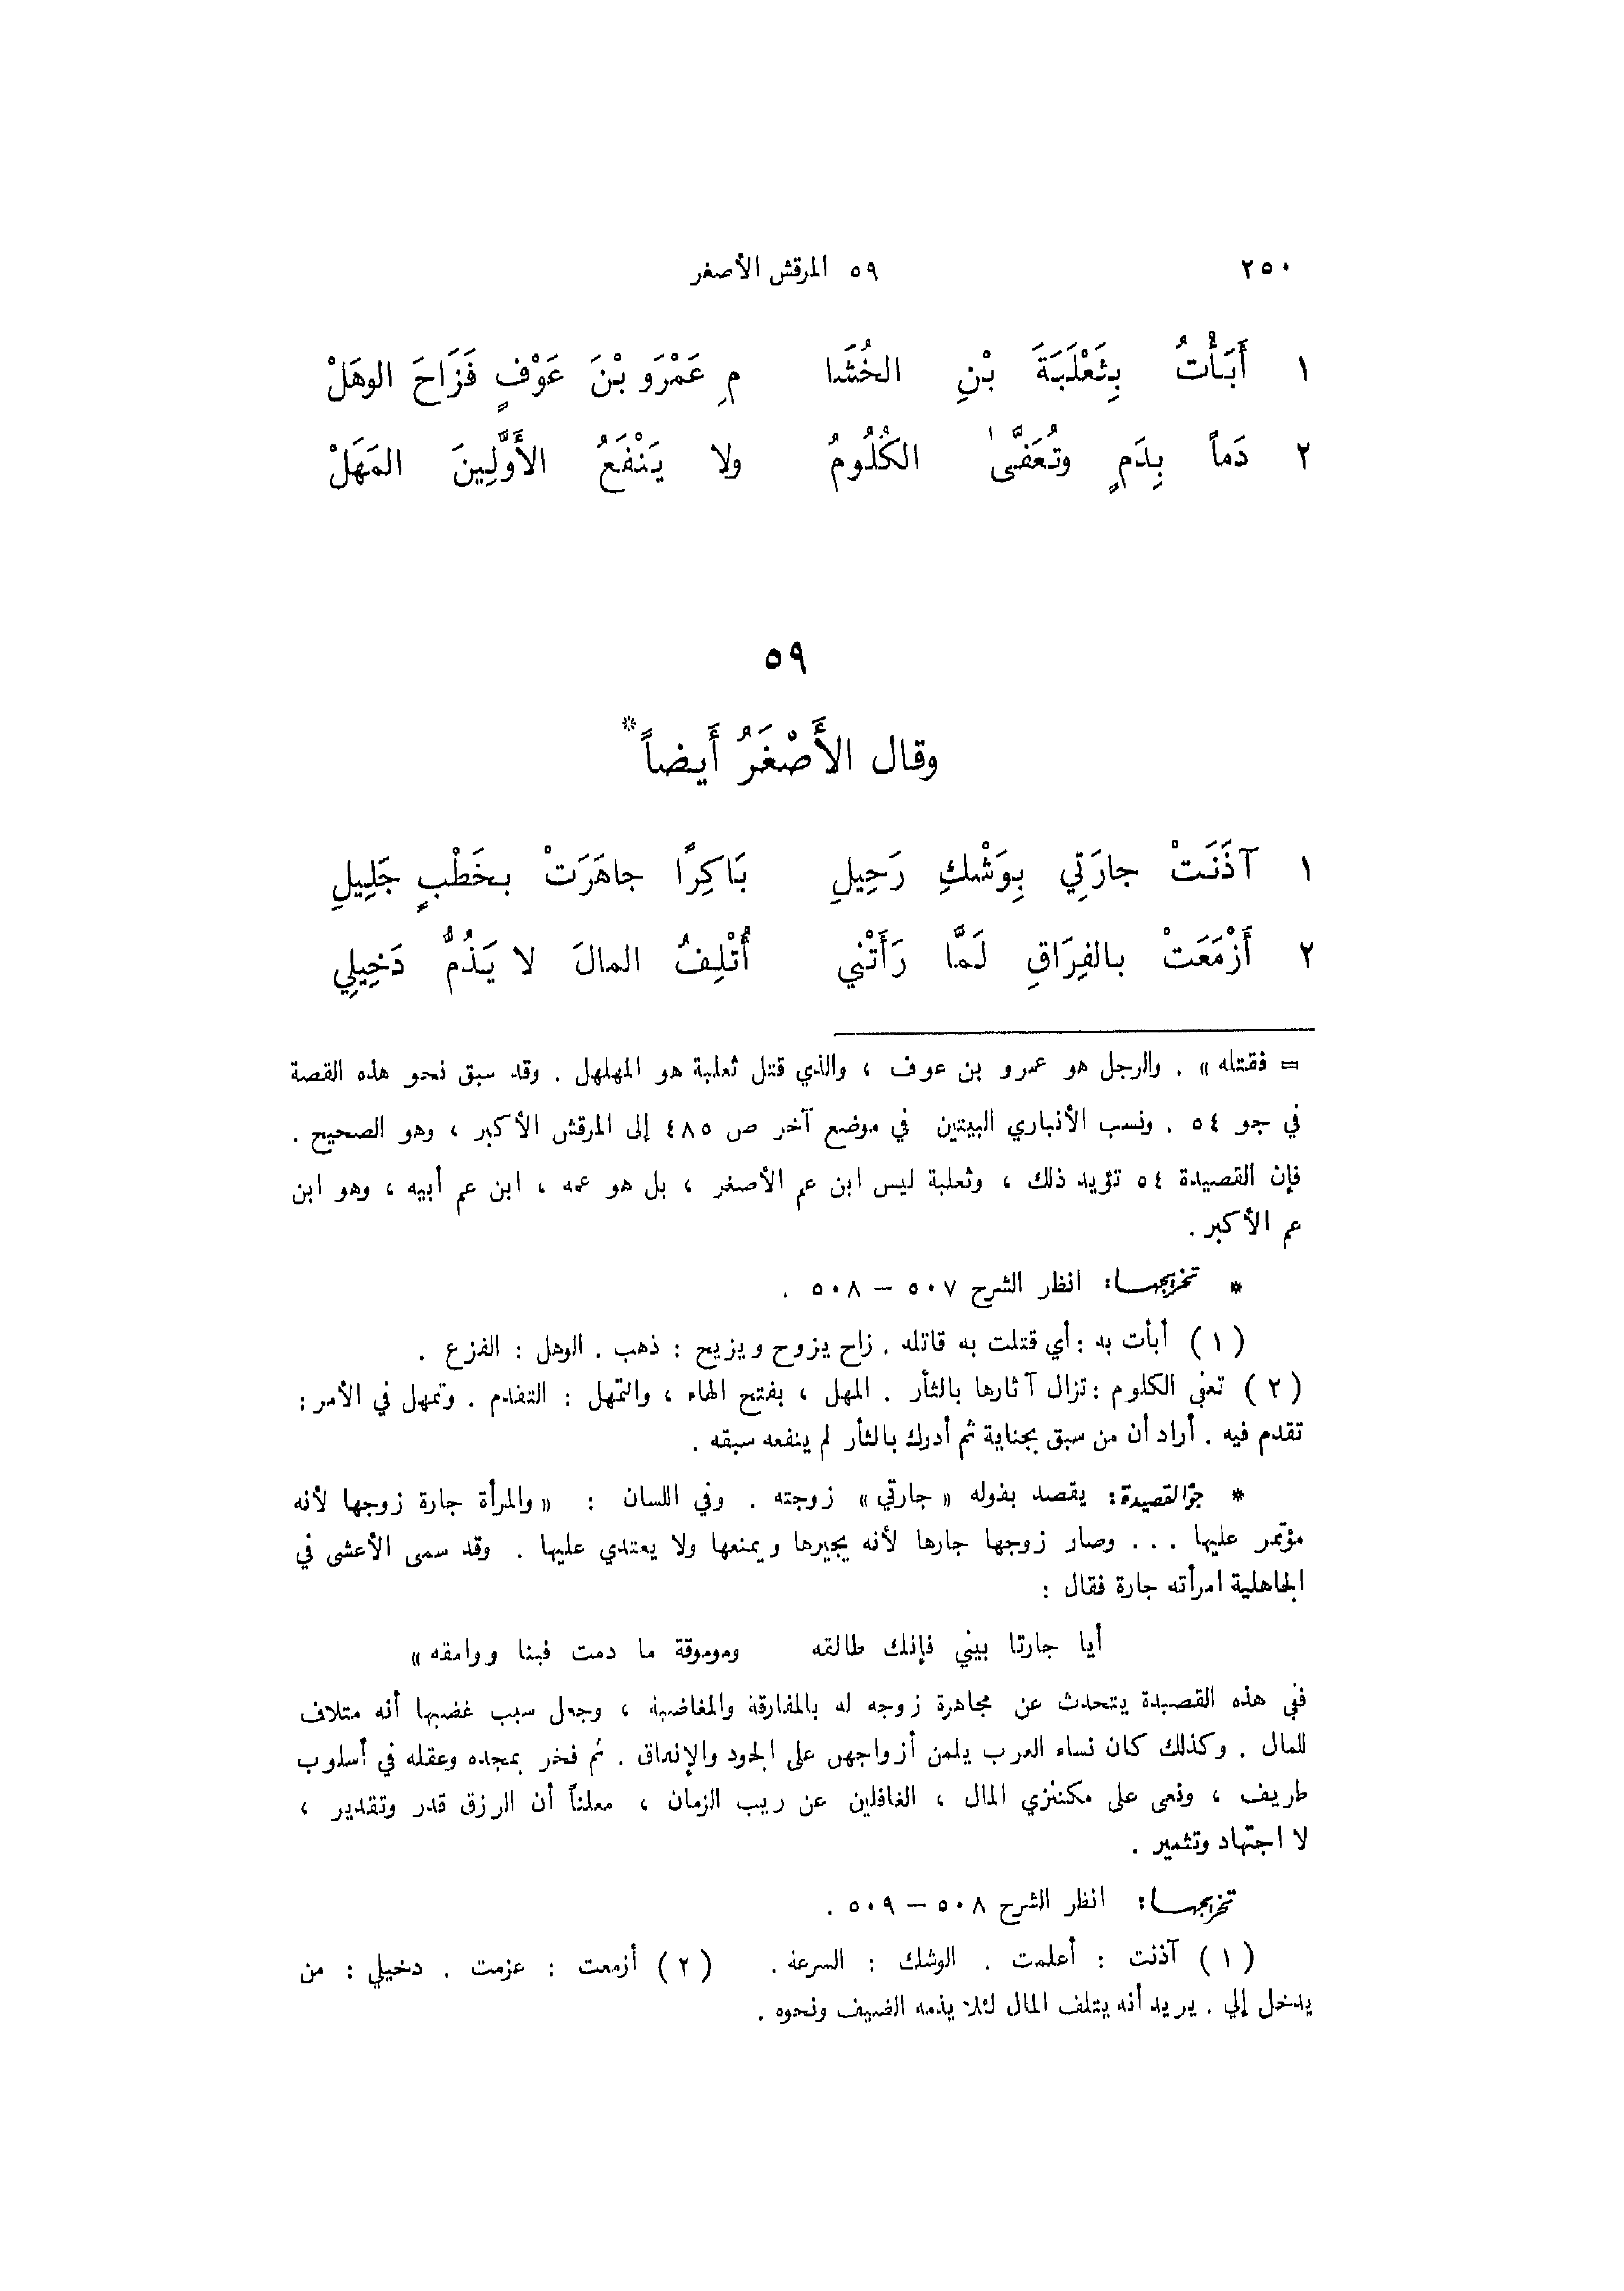 ٢٥٠ ٥٩ المرقش الأصغر
١ أَبَأْتُ بِثَعْلَبَةَ بْنِ الخُشَا مِ عَمْرَو بْنَ عَوْفٍ فَزَاحَ الوهَلْ
٢ دَماً بِدَمٍ وتُعَفَّىٰ الكُلُومُ ولا يَنْفَعُ الأَوَّلِينَ المَهَلْ
٥٩
وقال الأَصْغَرُ أَيضاً*
١ آذَنَتْ جارَتِي بِوَشْكِ رَحِيلِ بَاكِرًا جاهَرَتْ بخَطْبٍ جَلِيلِ
٢ أَزْمَعَتْ بالفِرَاقِ لَمَّا رَأَتْني أُتْلِفُ المالَ لا يَذُمُّ دَخِيلِي
= فقتله » . والرجل هو عمرو بن عوف ، والذي قتل ثعلبة هو المهلهل . وقد سبق نحو هذه القصة
في جو ٥٤ . ونسب الأنباري البيتين في موضع آخر ص ٤٨٥ إلى المرقش الأكبر ، وهو الصحيح .
فإن القصيدة ٥٤ تؤيد ذلك ، وثعلبة ليس ابن عم الأصغر ، بل هو عمه ، ابن عم أبيه ، وهو ابن
عم الأكبر .
* تخريجها: انظر الشرح ٥٠٧ – ٥٠٨ .
(١) أبأت به : أي قتلت به قاتله . زاح يزوح ويزيح : ذهب . الوهل : الفزع .
(٢) تعفى الكلوم : تزال آثارها بالثأر . المهل ، بفتح الهاء ، والتمهل : التقدم . وتمهل في الأمر :
تقدم فيه . أراد أن من سبق بجناية ثم أدرك بالثأر لم ينفعه سبقه .
* جوّ القصيدة: يقصد بقوله « جارتي » زوجته . وفي اللسان : « والمرأة جارة زوجها لأنه
مؤتمر عليها ... وصار زوجها جارها لأنه يجيرها ويمنعها ولا يعتدي عليها . وقد سمى الأعشى في
الجاهلية امرأته جارة فقال :
أيا جارتا بيني فإنك طالقه وموموقة ما دمت فينا ووامقه »
ففي هذه القصيدة يتحدث عن مجاهرة زوجه له بالمفارقة والمغاضبة ، وجعل سبب غضبها أنه متلاف
للمال . وكذلك كان نساء العرب يلمن أزواجهن على الجود والإنفاق . ثم فخر بمجده وعقله في أسلوب
طريف ، ونعى على مكتنزي المال ، الغافلين عن ريب الزمان ، معلناً أن الرزق قدر وتقدير ،
لا اجتهاد وتثمير .
تخريجها: انظر الشرح ٥٠٨ – ٥٠٩ .
(١) آذنت : أعلمت . الوشك : السرعة . (٢) أزمعت : عزمت . دخيلي : من
يدخل إلي . يريد أنه يتلف المال لئلا يذمه الضيف ونحوه .